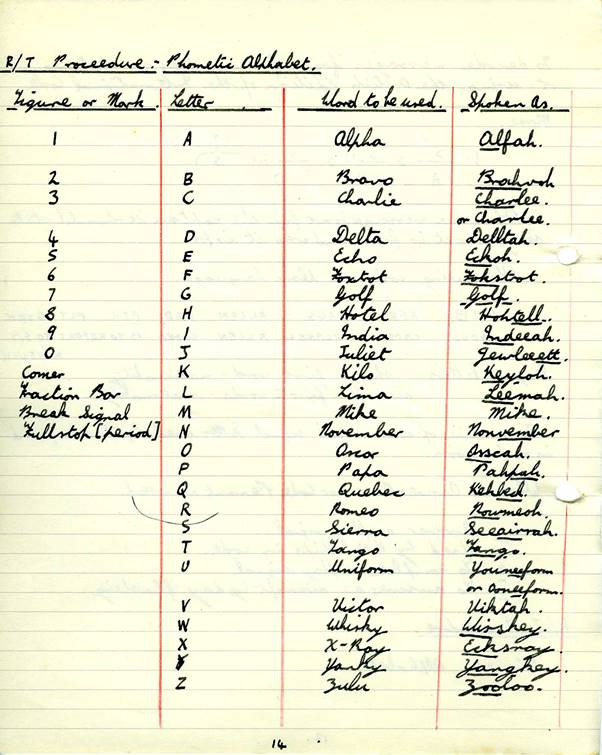 R/T Proceedure :- Phonetic Alphabet.
Figure or Mark. Letter Word to be used. Spoken As.
1 A Alpha Alfah.
2 B Bravo Brahvoh
3 C Charlie Charlee.
or Charlee.
4 D Delta Delltah.
5 E Echo Eckoh.
6 F Foxtrot Fokstrot.
7 G Golf Golf.
8 H Hotel Hohtell.
9 I India Indeeah.
0 J Juliet Jewleeett.
Comer K Kilo Keyloh.
Fraction Bar L Lima Leemah.
Break Signal M Mike Mike.
Fullstop [period] N November Nonvember
O Oscor Osscah.
P Papa Pahpah.
Q Quebec Kehbed.
R Romeo Rowmeoh.
S Sierra Seeairrah.
T Tango Tango.
U Uniform Youneeform
or Ooneeform.
V Victor Viktah.
W Whisky Wisskey.
X X-Ray Ecksray.
Y Yanky Yangkey.
Z Zulu Zooloo.
14